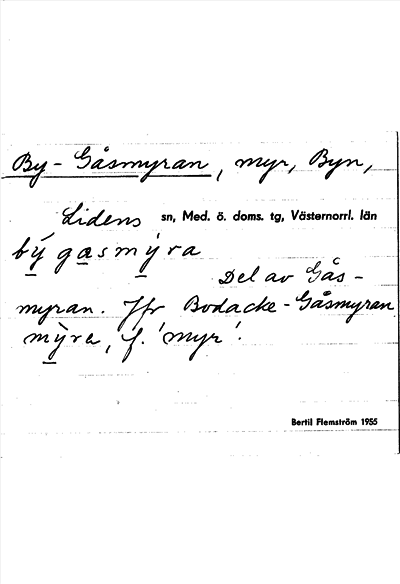 By-Gåsmyran, myr, Byn,
Lidens sn, Med. ö. doms. tg, Västernorrl. län
bý gasmỳra
Del av Gås-
myran. Jfr Bodacke-Gåsmyran
mỳra, f. 'myr'.
Bertil Flemström 1955